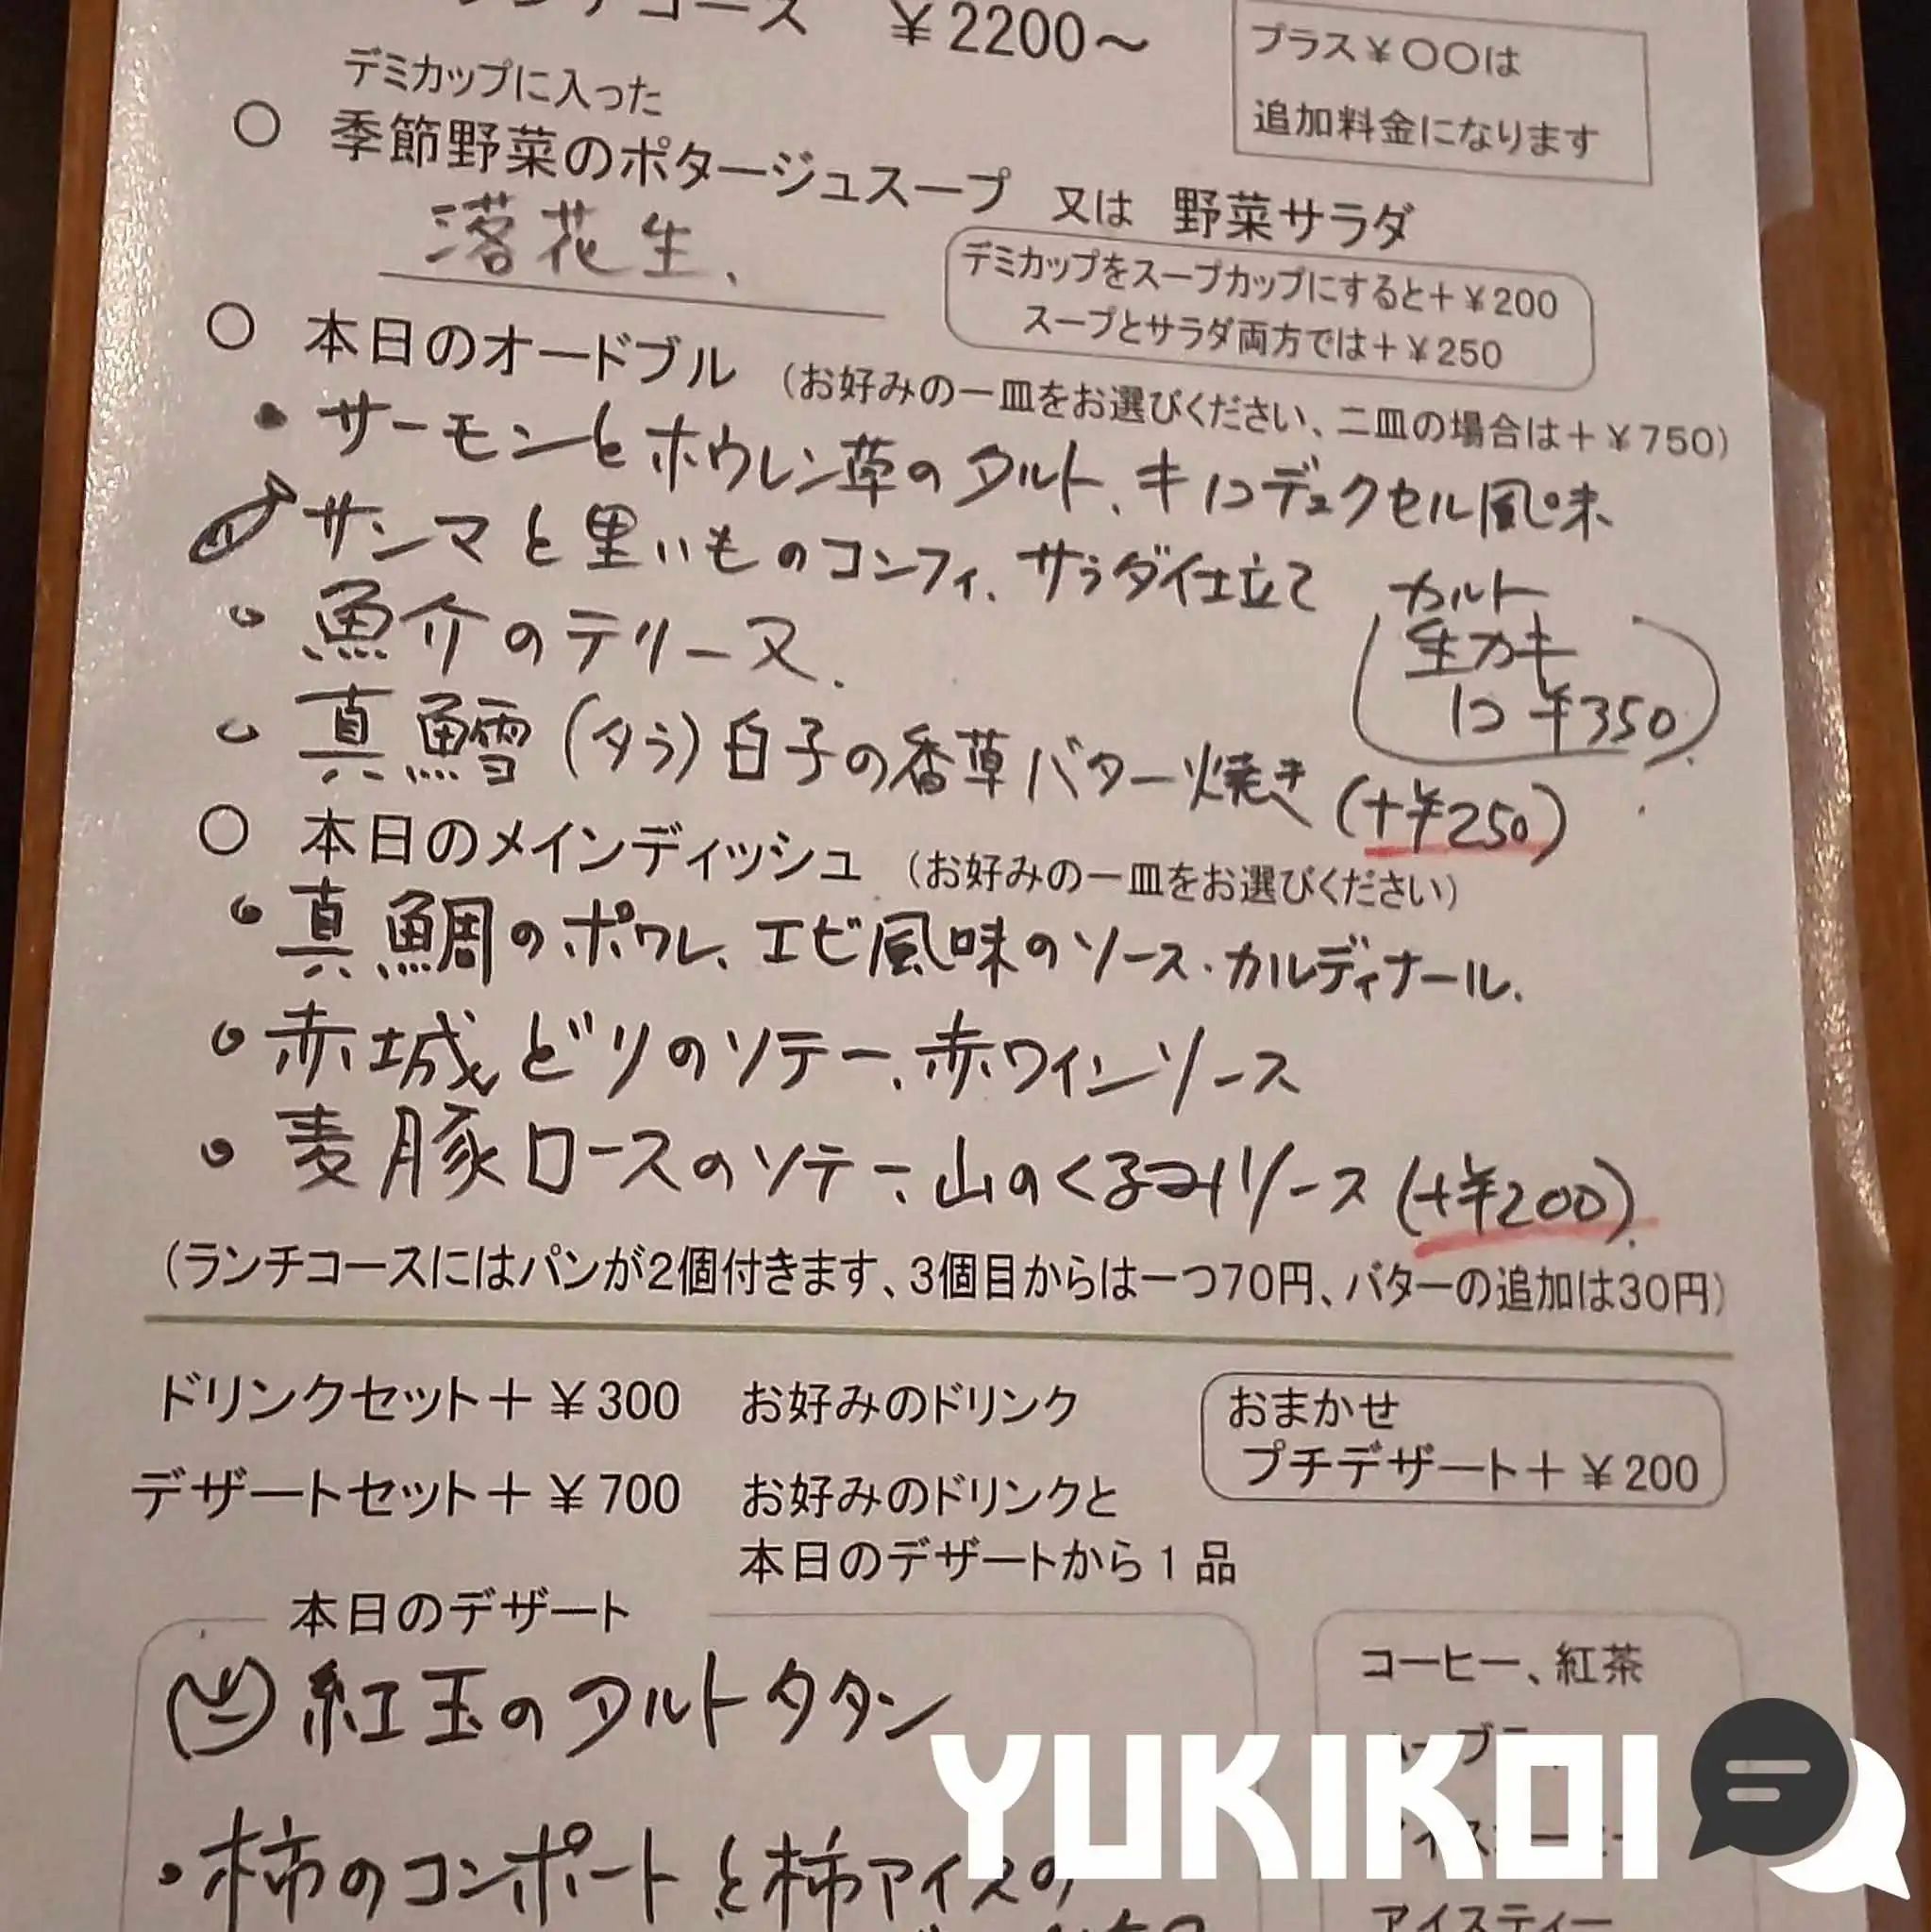 ランチコース ¥2200～
プラス¥〇〇は
追加料金になります
デミカップに入った
〇 季節野菜のポタージュスープ 又は 野菜サラダ
落花生、
デミカップをスープカップにすると＋¥200
スープとサラダ両方では＋¥250
〇 本日のオードブル (お好みの一皿をお選びください、二皿の場合は＋¥750)
・サーモンとホウレン草のタルト、キノコデュクセル風味
サンマと里いものコンフィ、サラダ仕立て
・魚介のテリーヌ、
カルト
生カキ
1コ ¥350
・真鱈(タラ)白子の香草バター焼き(+¥250)
〇 本日のメインディッシュ (お好みの一皿をお選びください)
・真鯛のポワレ、エビ風味のソース・カルディナール、
・赤城どりのソテー、赤ワインソース
・麦豚ロースのソテー、山のくるみソース(+¥200)
(ランチコースにはパンが2個付きます、3個目からは一つ70円、バターの追加は30円)
ドリンクセット＋¥300 お好みのドリンク
おまかせ
プチデザート＋¥200
デザートセット＋¥700 お好みのドリンクと
本日のデザートから1品
本日のデザート
紅玉のタルトタタン
・柿のコンポートと柿アイスの
コーヒー、紅茶
アイスティー
YUKIKOI